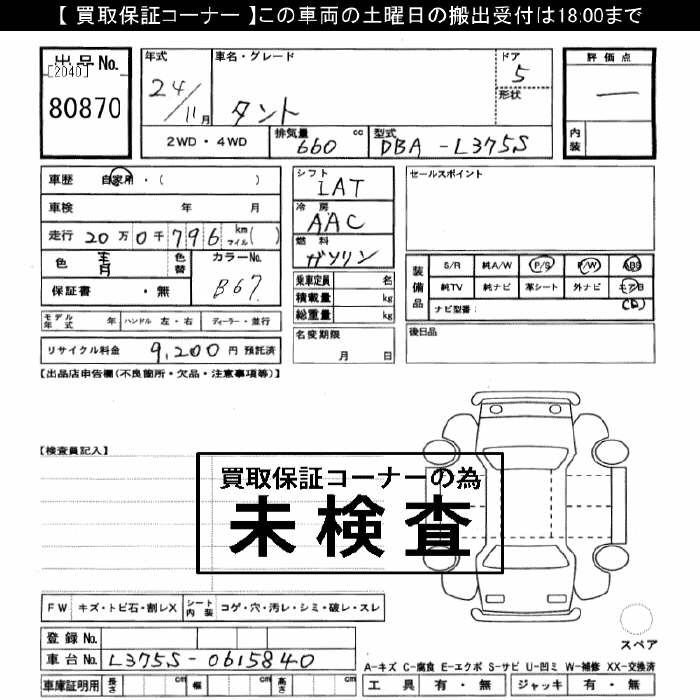 【 買取保証コーナー 】この車両の土曜日の搬出受付は18:00まで
出品No.
[2040]
80870
年式
24/11月
車名・グレード
タント
ドア
5
形状
評価点
―
内装
2WD・4WD
排気量
660 cc
型式
DBA -L375S
車歴 自家用・( )
車検 年 月
走行 20万0千796 km マイル( )
色 青 色替
カラーNo.
B67
保証書 ・無
モデル年式 年 ハンドル 左・右 ディーラー・並行
リサイクル料金 9,200円 預託済
シフト
IAT
冷房
AAC
燃料
ガソリン
乗車定員 名
積載量 kg
総重量 kg
名変期限
月 日
セールスポイント
装備品
S/R 純A/W P/S P/W ABS
純TV 純ナビ 革シート 外ナビ エアB
ナビ型番: (D)
後日品
【出品店申告欄(不良箇所・欠品・注意事項等)】
【検査員記入】
買取保証コーナーの為
未検査
FW キズ・トビ石・割レX シート内装 コゲ・穴・汚レ・シミ・破レ・スレ
登録No.
車台No. L375S-0615840
車庫証明用 長さ cm 幅 cm 高さ cm
スペア
A-キズ C-腐食 E-エクボ S-サビ U-凹ミ W-補修 XX-交換済
工具 有・無 ジャッキ 有・無